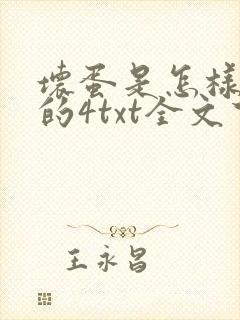 壞蛋是怎樣
的4txt全文
王永昌